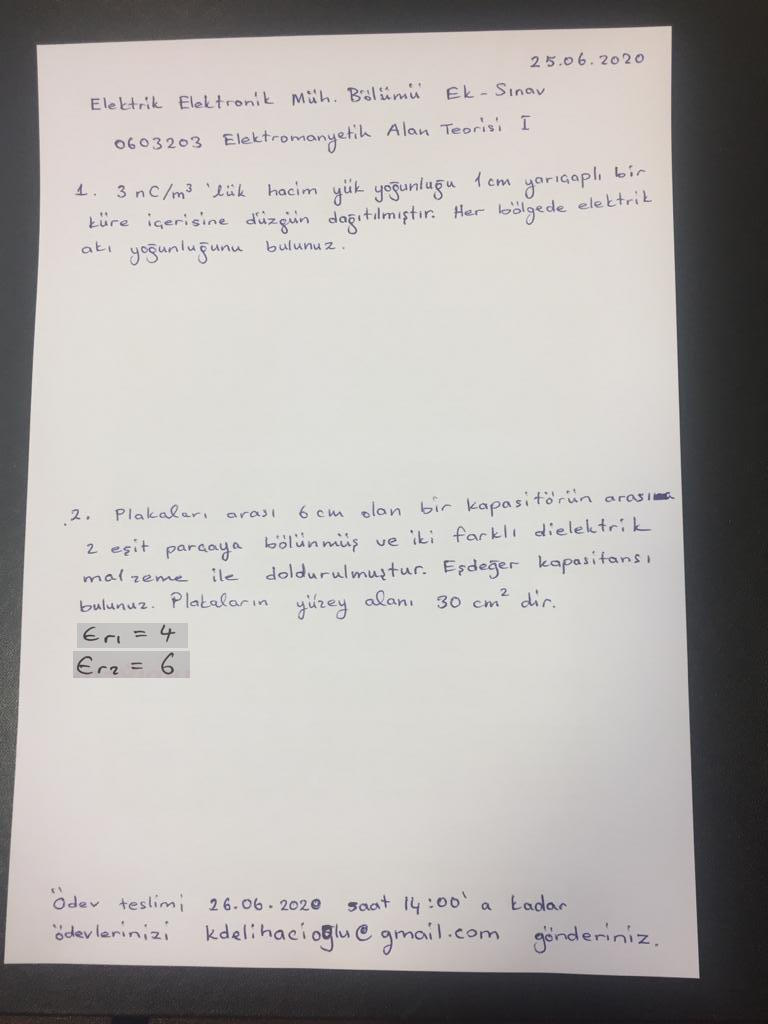 25.06.2020
Elektrik Elektronik Müh. Bölümü Ek-Sınav
0603203 Elektromanyetik Alan Teorisi I
1. 3 nC/m³ 'lük hacim yük yoğunluğu 1 cm yarıçaplı bir
küre içerisine düzgün dağıtılmıştır. Her bölgede elektrik
akı yoğunluğunu bulunuz.
2. Plakaları arası 6 cm olan bir kapasitörün arası
2 eşit parçaya bölünmüş ve iki farklı dielektrik
malzeme ile doldurulmuştur. Eşdeğer kapasitansı
bulunuz. Plakaların yüzey alanı 30 cm² dir.
Er1 = 4
Er2 = 6
Ödev teslimi 26.06.2020 saat 14:00' a kadar
ödevlerinizi kdelihacioglu@gmail.com gönderiniz.